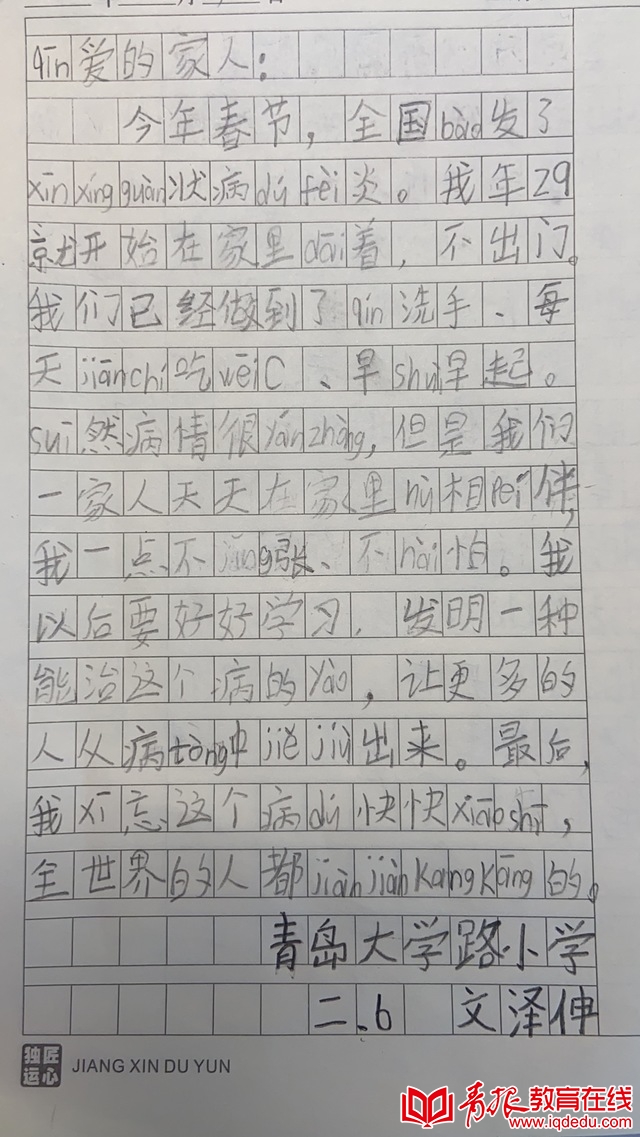 qīn爱的家人：
今年春节，全国bào发了
xīn xíng guàn状病dú fèi炎。我年29
就开始在家里dāi着，不出门。
我们已经做到了qín洗手、每
天jiān chí吃wēi C、早shuì早起。
suī然病情很yán zhòng，但是我们
一家人天天在家里hù相péi伴，
我一点不jǐng张、不hài怕。我
以后要好好学习，发明一种
能治这个病的yào，让更多的
人从病tòng中jiě jiù出来。最后，
我xī忘这个病dú快快xiāo shī，
全世界的人都jiàn jiàn kāng kāng的。
青岛大学路小学
二.6 文泽伸
独匠运心 JIANG XIN DU YUN
青报教育在线
www.iqdedu.com